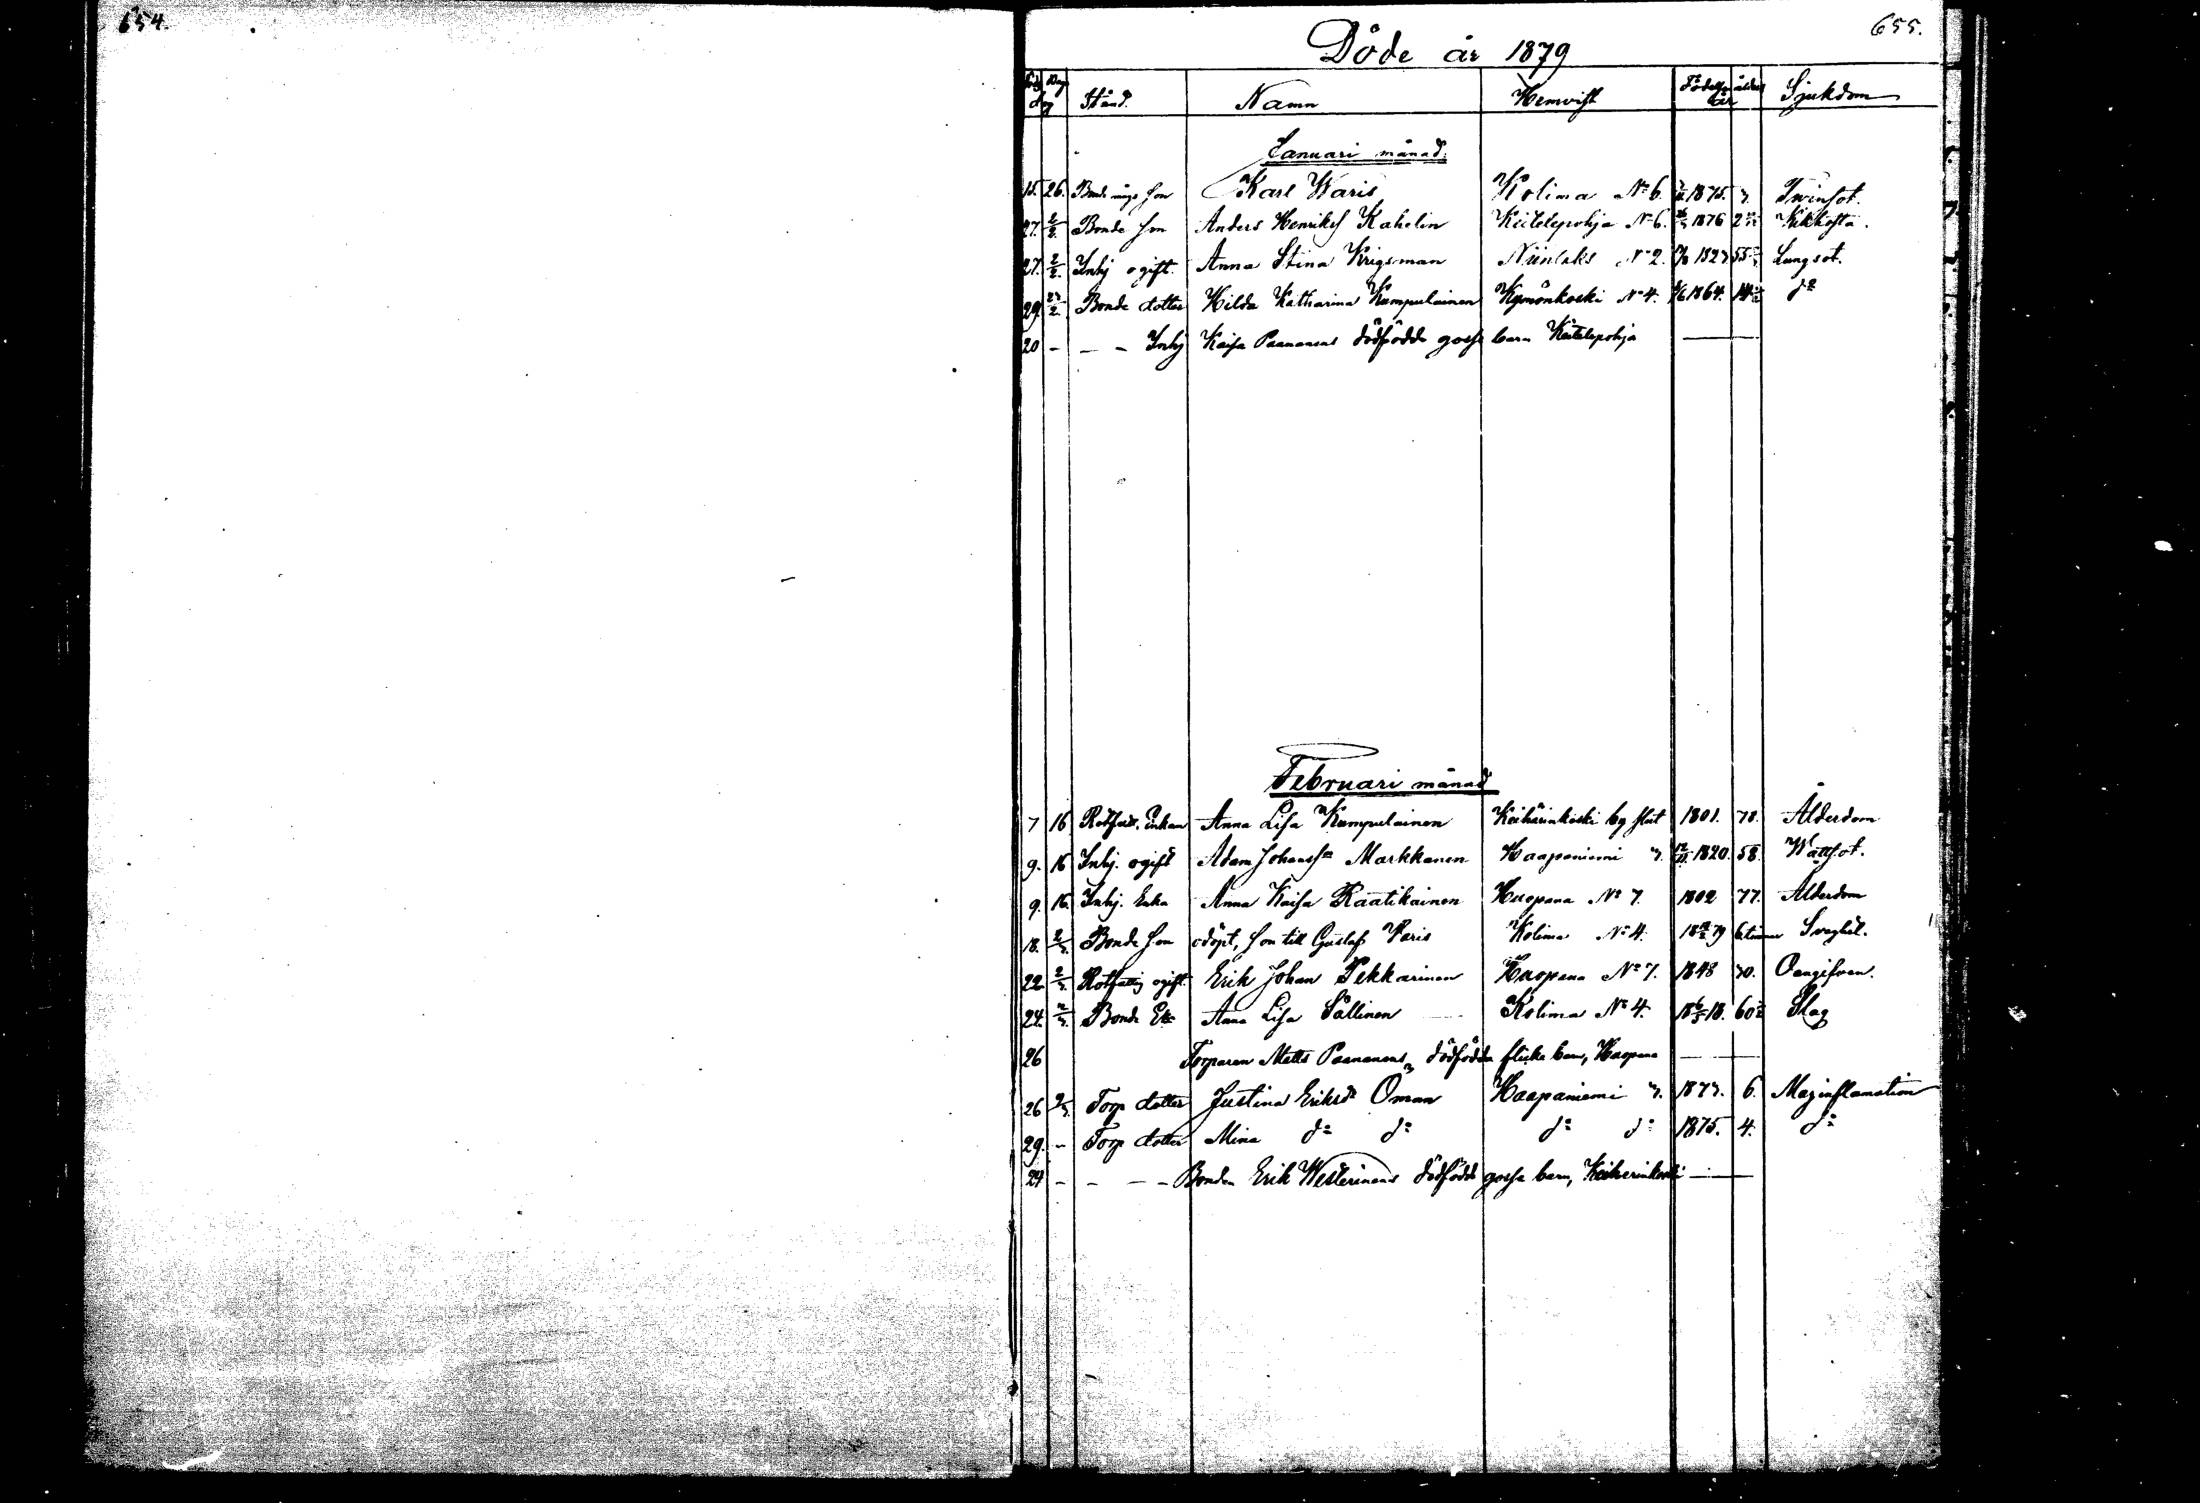 654.
655.
Döde år 1879
Död Beg dag Stånd Namn Hemvist Födelse år ålder Sjukdom
Januari månad.
15. 26. Bonde mågs son Karl Waris Kolima No 6. 1875. 3 Twinsot.
27. 2/2. Bonde son Anders Henrikss Kahelin Keitelepohja No 6. 1876 2 Kikhosta.
27. 2/2. Inhj ogift. Anna Stina Krigsman Niinilaks No 2. 1823 55 Lungsot.
29. 23/2. Bonde dotter Hilda Katharina Kumpulainen Kymönkoski No 4. 1864. 14 do
20 - - - Inhj Kaisa Paananens dödfödde gosse barn Keitelepohja
Februari månad
7 16 Enkan Anna Lisa Kumpulainen Keihärinkoski by 1801. 78. Ålderdom
9. 16 Inhj. ogift Adam Johanss Markkanen Haapaniemi 3. 1820. 58. Wattsot.
9. 16. Inhj. Enka Anna Kaisa Raatikainen Huopana No 7. 1802 77. Ålderdom
18. 2/3. Bonde son odöpt, son till Gustaf Varis Kolima No 4. 79 6 timar Svaghet.
22. 2/3. Rotfattig ogift Erik Johan Pekkarinen Huopana No 7. 1848 30. Oangifven.
24. 2/3. Bonde Enka Anna Lisa Sällinen Kolima No 4. 18 18. 60 Slag
26 Torparen Matts Paananens dödfödda flicka barn, Huopana
26 2/3. Torp dotter Justina Eriksdr Öman Haapaniemi 3. 1873. 6. Maginflamation
29. - Torp dotter Mina do do do do 1875. 4. do
24 - - - - Bonden Erik Westerinens dödfödde gosse barn, Keiherinkoski